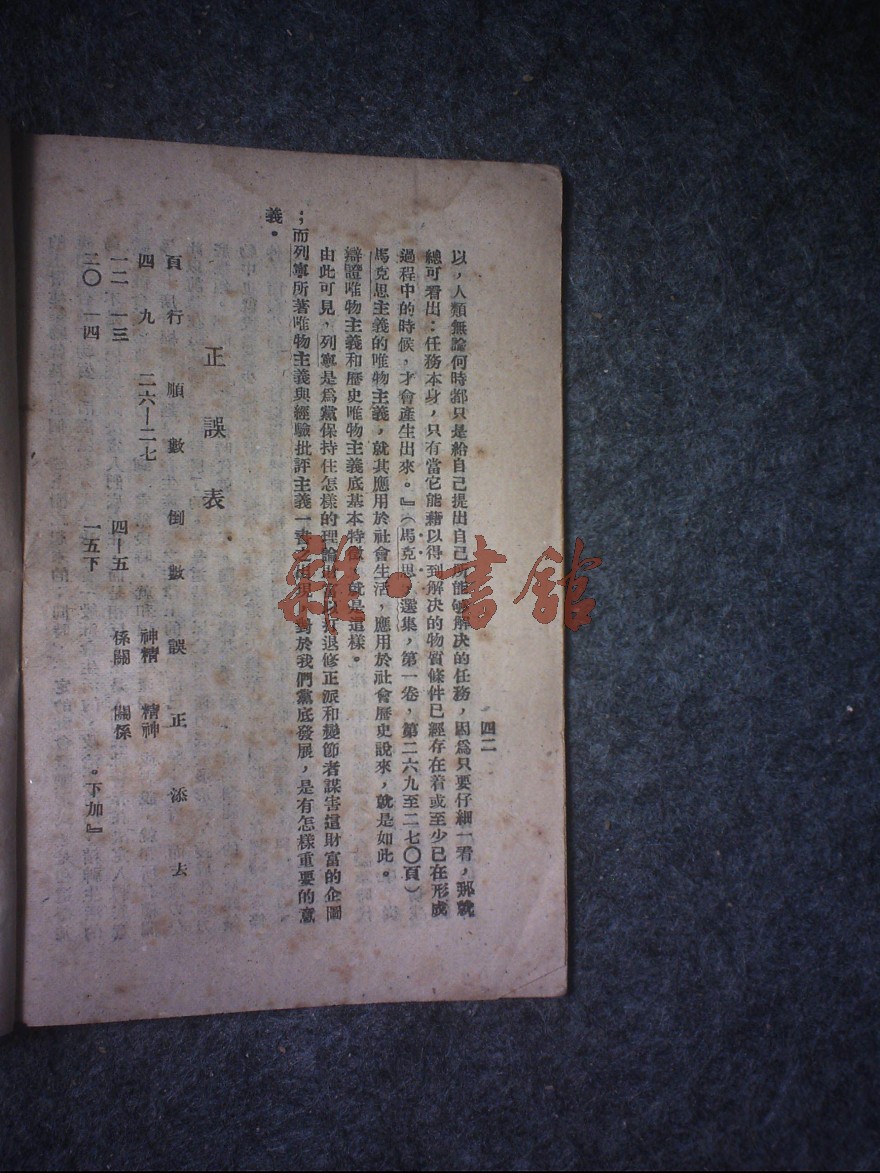 四二
以，人類無論何時都只是給自己提出自己所能够解决的任務，因爲只要仔細一看，那就
總可看出：任務本身，只有當它能藉以得到解决的物質條件已經存在着或至少已在形成
過程中的時候，才會產生出來。』（馬克思，選集，第一卷，第二六九至二七〇頁）
馬克思主義的唯物主義，就其應用於社會生活，應用於社會歷史說來，就是如此。
辯證唯物主義和歷史唯物主義底基本特徵，就是這樣。
由此可見，列寧是爲黨保持住怎樣的理論財富以打退修正派和變節者謀害這財富的企圖
；而列寧所著唯物主義與經驗批評主義一書之出現，對於我們黨底發展，是有怎樣重要的意
義。
正誤表
頁 行 順數 倒數 誤 正 添 去
四 九 二六—二七 神精 精神
一二 一三 四—五 係關 關係
二〇 一四 一五下 。下加』
雜·書館